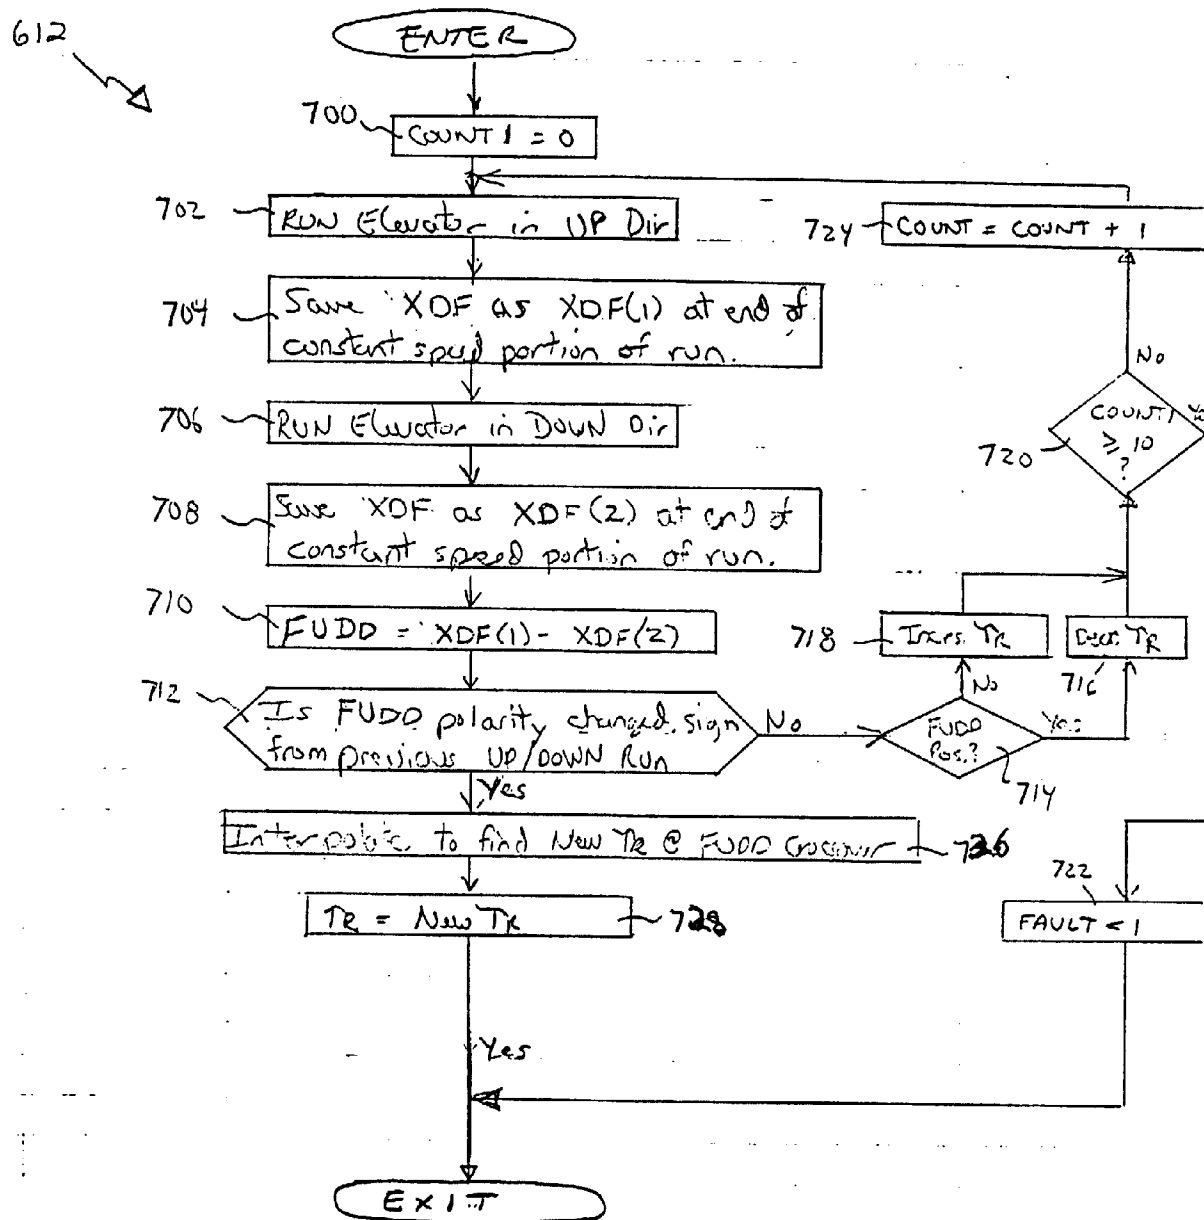 612
ENTER
700
COUNT1 = 0
702
RUN Elevator in UP Dir
724
COUNT = COUNT + 1
704
Save XDF as XDF(1) at end of
constant speed portion of run.
No
706
RUN Elevator in DOWN Dir
COUNT1
≥ 10
?
720
708
Save XDF as XDF(2) at end of
constant speed portion of run.
710
FUDD = XDF(1) - XDF(2)
718
Incrs. TR
TR
716
712
Is FUDD polarity changed sign
from previous UP/DOWN Run
No
No
FUDD
Pos.?
Yes
714
Yes
Interpolate to find New TR @ FUDD Crossover
726
722
TR = New TR
728
FAULT = 1
Yes
EXIT